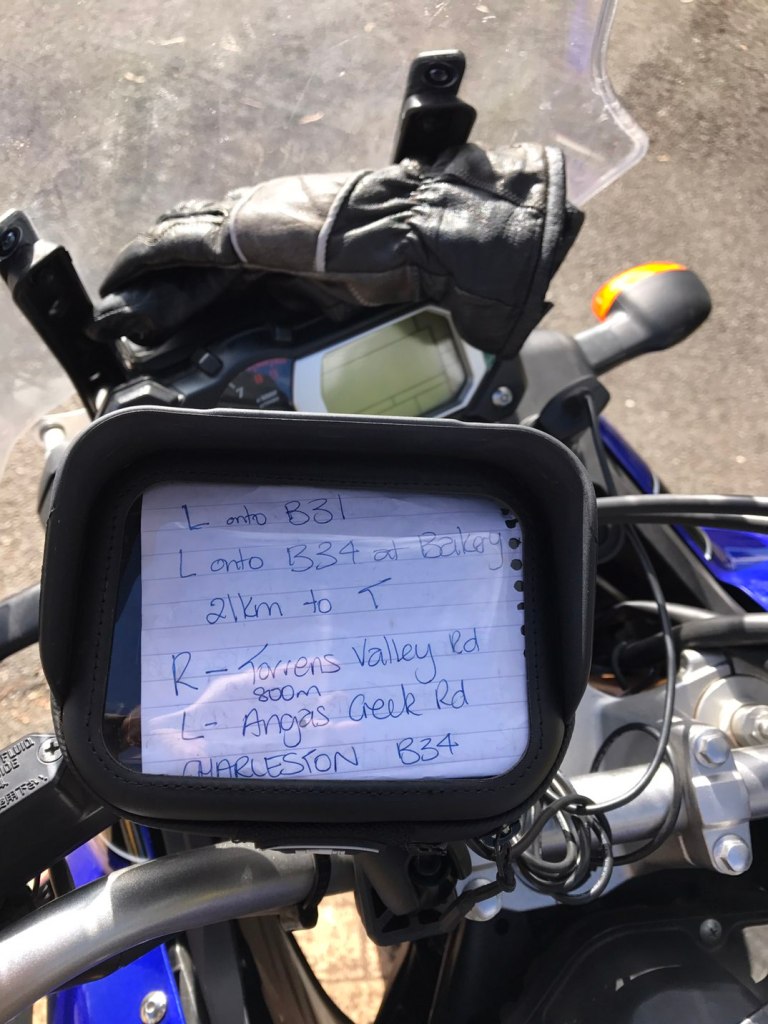 L onto B31
L onto B34 at Bakery
21km to T
R - Torrens Valley Rd
800m
L - Angas Creek Rd
CHARLESTON B34
FLUID